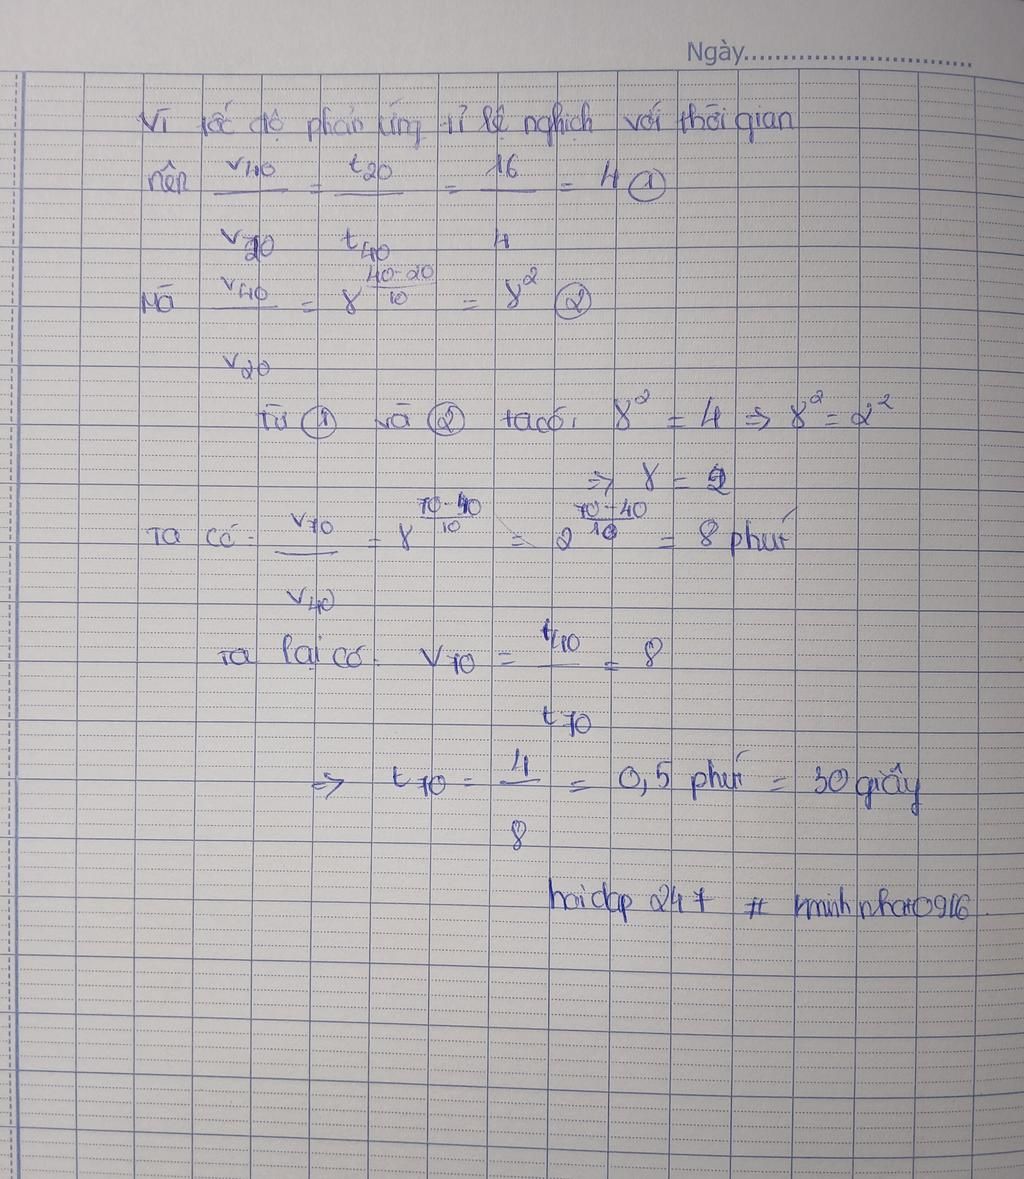 Ngày
Vì tốc độ phản ứng tỉ lệ nghịch với thời gian
nên v40/v20 = t20/t40 = 16/4 = 4 ①
Mà v40/v20 = γ^((40-20)/10) = γ² ②
Từ ① và ② ta có: γ² = 4 ⇒ γ² = 2²
⇒ γ = 2
Ta có: v70/v40 = γ^((70-40)/10) = 2^((70-40)/10) = 8 phút
Ta lại có. v70 = t40/t70 = 8
⇒ t70 = 4/8 = 0,5 phút = 30 giây
hoidap 247 # minhnhat0916